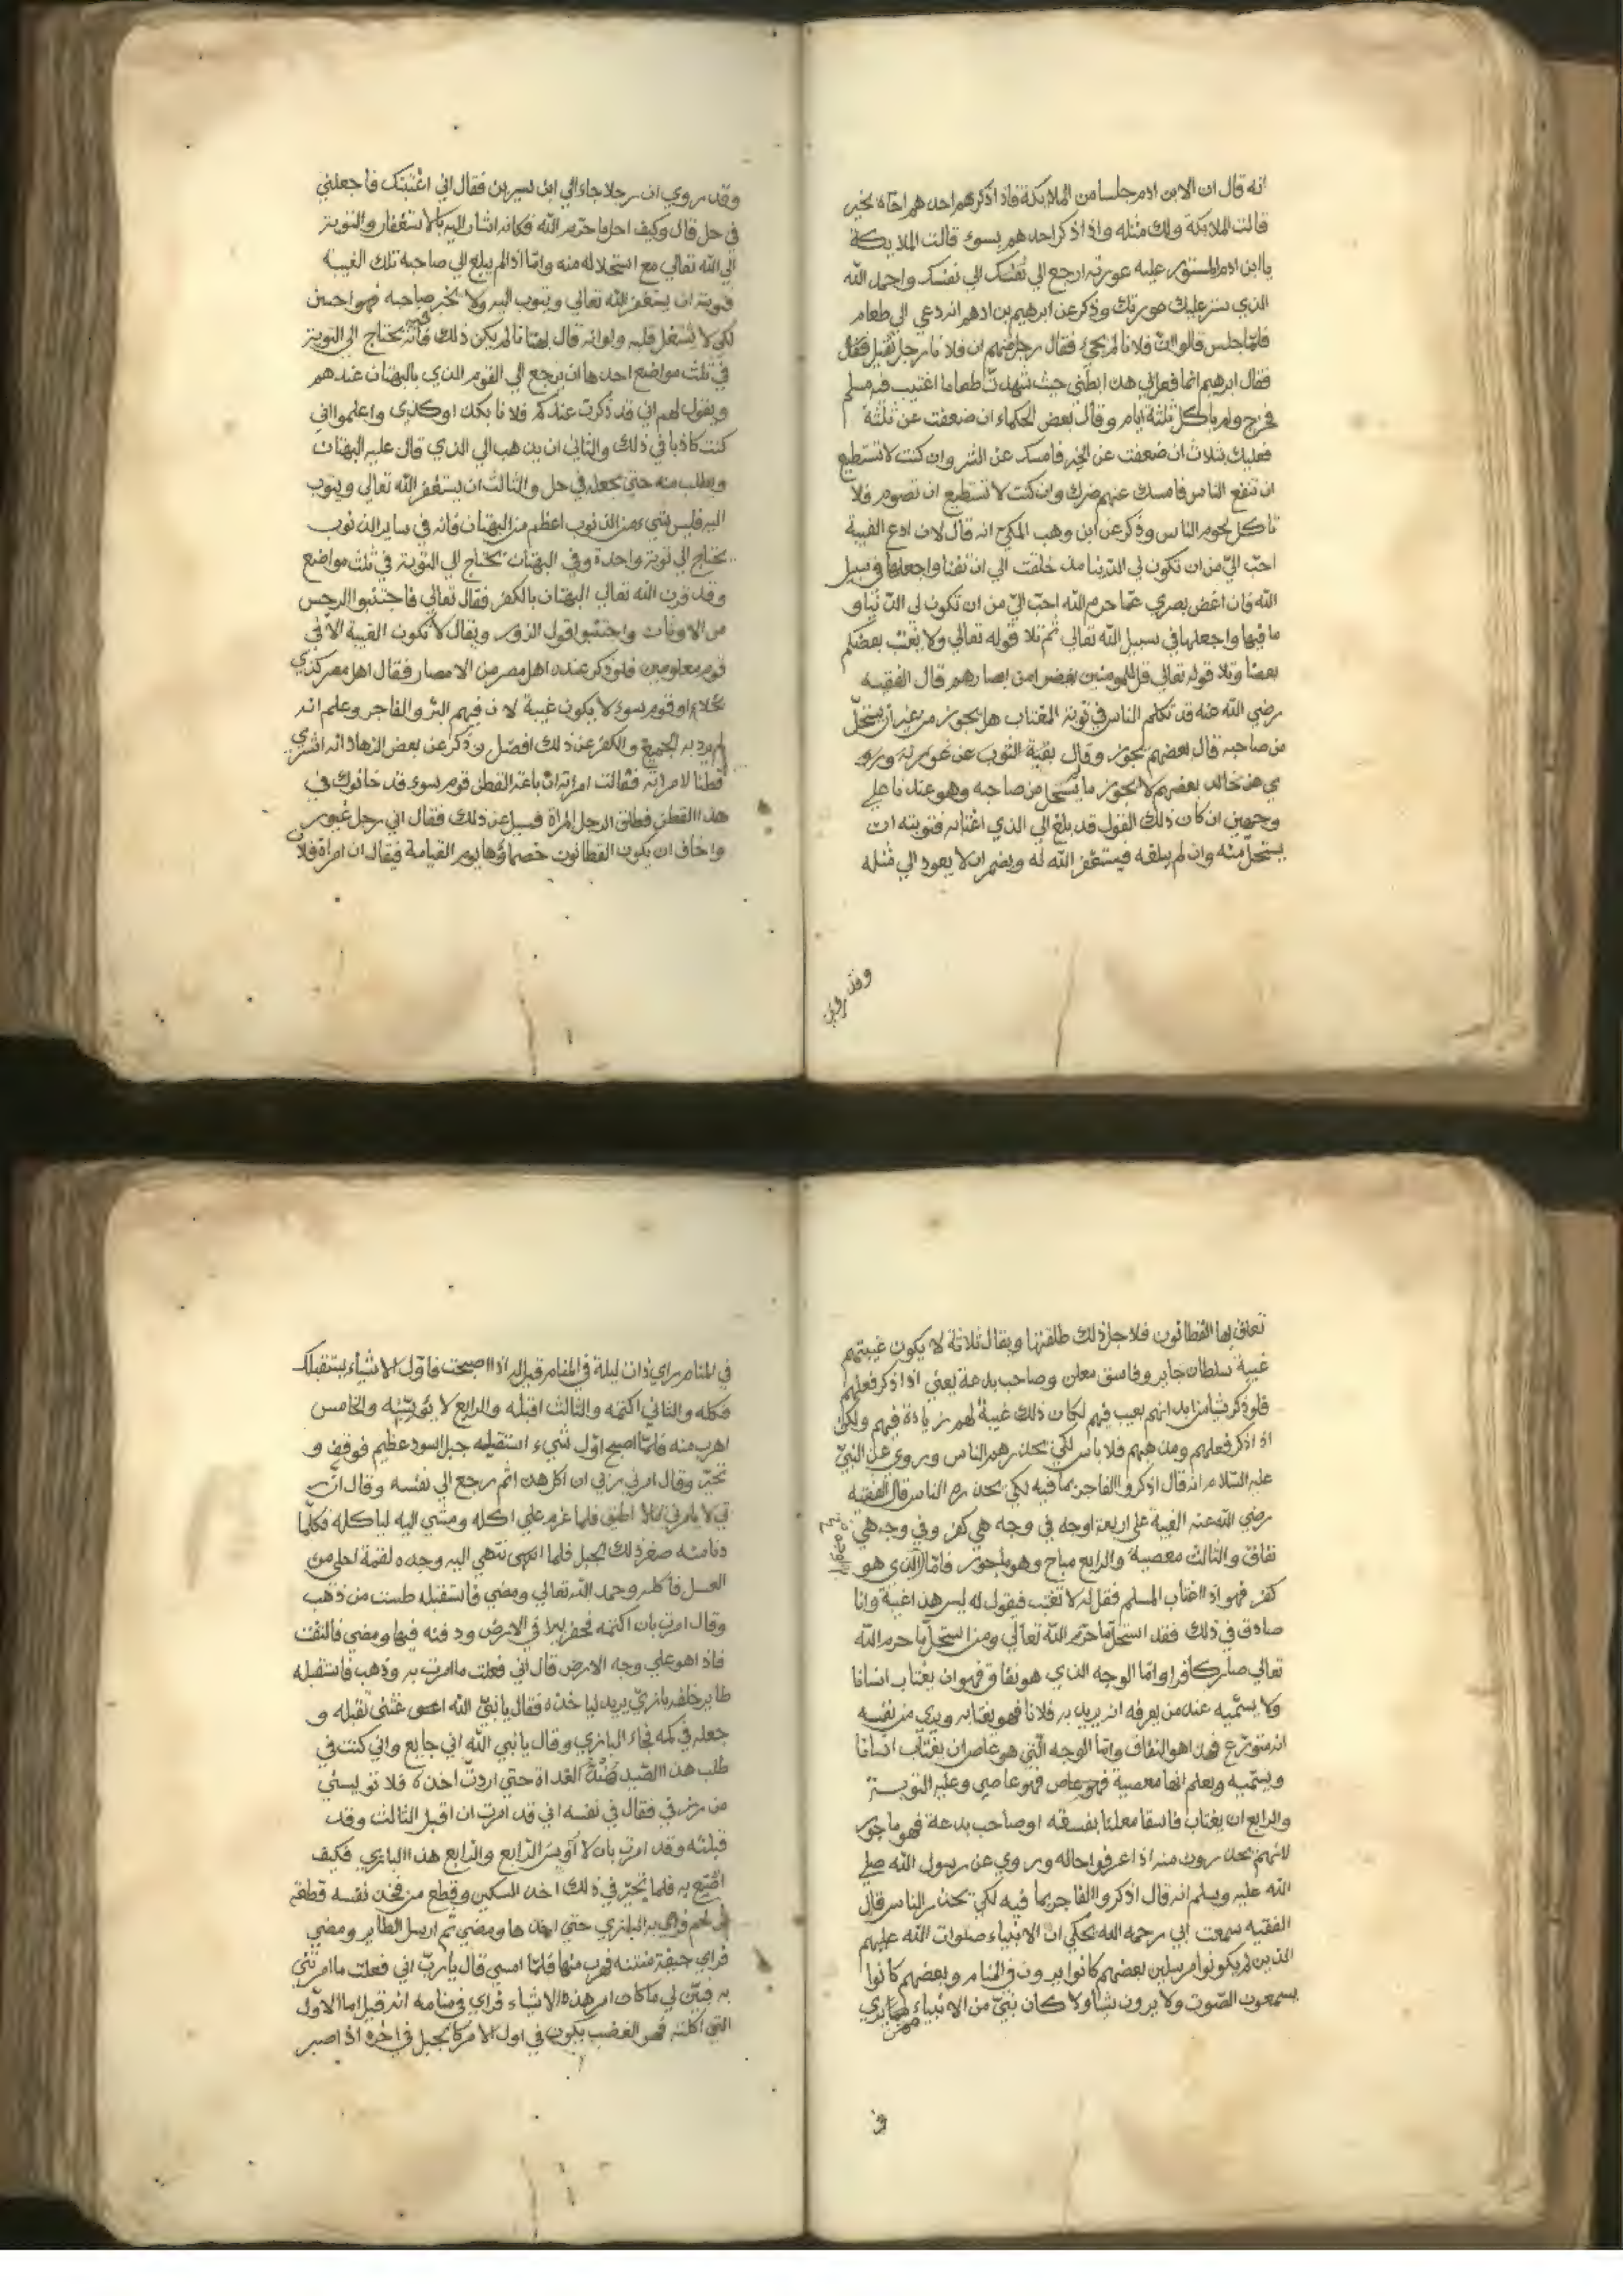 انه قال ان الابن ادم جلسا من الملايكة فاذ اذكرهم احدهم اخاه بخير
قالت الملائكة ولك مثله واذ اذكر احدهم بسوء قالت الملايكة
يا ابن ادم المستور عليه عورته ارجع الي نفسك الي نفسك واحمد الله
الذي ستر عليك عورتك وذكر عن ابرهيم بن ادهم انه دعي الي طعام
فلما جلس قالوا ان فلانا لم يجئ فقال رجل منهم ان فلانا رجل ثقيل فقال
فقال ابرهيم انما فعل بي هذا بطني حيث شهدت طعاما اغتيب فيه مسلم
فخرج ولم ياكل ثلثة ايام وقال بعض الحكماء ان ضعفت عن ثلثة
فعليك بثلاث ان ضعفت عن الخير فامسك عن الشر وان كنت لا تستطيع
ان تنفع الناس فامسك عنهم ضرك وان كنت لا تستطيع ان تصوم فلا
تاكل لحوم الناس وذكر عن ابن وهب المكي انه قال لان ادع الغيبة
احب الي من ان تكون لي الدنيا منذ خلقت الي ان تفنا واجعلها في سبيل
الله فان اغض بصري عما حرم الله احب الي من ان تكون لي الدنيا و
ما فيها واجعلها في سبيل الله تعالي ثم تلا قوله تعالي ولا يغتب بعضكم
بعضا وتلا قوله تعالي قل للمومنين يغضوا من ابصارهم قال الفقيه
رضي الله عنه قد تكلم الناس في توبة المغتاب هل يجوز من غير ان يستحل
من صاحبه قال بعضهم يجوز وقال
بعضهم لا يجوز ما يستحل من صاحبه وهو عندنا علي
وجهين ان كان ذلك القول قد بلغ الي الذي اغتابه فتوبته ان
يستحل منه وان لم يبلغه فيستغفر الله له ويضمر ان لا يعود الي مثله
وقد روي
وقد روي ان رجلا جاء الي ابن سيرين فقال اني اغتبتك فاجعلني
في حل قال وكيف احل ما حرم الله فكانه اشار اليه بالاستغفار والتوبة
الي الله تعالي مع استحلاله منه واما اذا لم يبلغ الي صاحبه تلك الغيبة
فتوبته ان يستغفر الله تعالي ويتوب اليه ولا يخبر صاحبه فهو احسن
لكي لا يشتغل قلبه ولو انه قال بهتانا لم يكن ذلك فيه فانه يحتاج الي التوبة
في ثلث مواضع احدها ان يرجع الي القوم الذي بالبهتان عندهم
ويقول لهم اني قد ذكرت عندكم فلانا بكذا وكذي واعلموا اني
كنت كاذبا في ذلك والثاني ان يذهب الي الذي قال عليه البهتان
ويطلب منه حتي يجعله في حل والثالث ان يستغفر الله تعالي ويتوب
اليه فليس شيء من الذنوب اعظم من البهتان فانه في ساير الذنوب
يحتاج الي توبة واحدة وفي البهتان يحتاج الي التوبة في ثلث مواضع
وقد قرن الله تعالي البهتان بالكفر فقال تعالي فاجتنبوا الرجس
من الاوثان واجتنبوا قول الزور ويقال لا تكون الغيبة الا في
قوم معلومين فلو ذكر عنده اهل مصر من الامصار فقال اهل مصر كذي
بخلاء او قوم سوء لا يكون غيبة لان فيهم البر والفاجر وعلم انه
لم يرد به الجميع والكف عن ذلك افضل وذكر عن بعض الزهاد انه اشتري
قطنا لامراته فقالت امراته ان باعة القطن قوم سوء قد خانوك في
هذا القطن فطلق الرجل المراة فسيل عن ذلك فقال اني رجل غيور
واخاف ان يكون القطانون خصماؤها يوم القيامة فيقال ان امراة فلان
تعلق بها القطانون فلاجل ذلك طلقتها ويقال ثلاثة لا يكون غيبتهم
غيبة سلطان جاير وفاسق معلن وصاحب بدعة يعني اذا ذكر فعلهم
فلو ذكر شيا من ابدانهم بعيب فيهم لكان ذلك غيبة لهم زيادة فيهم ولكن
اذ اذكر فعلهم ومذهبهم فلا باس لكي يحذرهم الناس وروي عن النبي
عليه السلام انه قال اذكروا الفاجر بما فيه لكي يحذره الناس قال الفقيه
رضي الله عنه الغيبة علي اربعة اوجه في وجه هي كفر وفي وجه هي
نفاق والثالث معصية والرابع مباح وهو ماجور فاما الذي هو
كفر فهو اذا اغتاب المسلم فقيل له لا تغتب فيقول له ليس هذا غيبة وانا
صادق في ذلك فقد استحل ما حرم الله تعالي ومن استحل ما حرم الله
تعالي صار كافرا واما الوجه الذي هو نفاق فهو ان يغتاب انسانا
ولا يسميه عند من يعرفه انه يريد به فلانا فهو يغتابه ويري من نفسه
انه متورع فهذا هو النفاق واما الوجه التي هو عاص ان يغتاب انسانا
ويسميه ويعلم انها معصية فهو عاص فهو عاصي وعليه التوبة
والرابع ان يغتاب فاسقا معلنا بفسقه او صاحب بدعة فهو ماجور
لانهم يحذرون منه اذا عرفوا حاله وروي عن رسول الله صلي
الله عليه وسلم انه قال اذكروا الفاجر بما فيه لكي يحذر الناس قال
الفقيه سمعت ابي رحمه الله يحكي ان الانبياء صلوات الله عليهم
الذين لم يكونوا مرسلين بعضهم كانوا يرون في المنام وبعضهم كانوا
يسمعون الصوت ولا يرون شيا ولا كان نبي من الانبياء ممن يري
في
في المنام راي ذات ليلة في المنام قيل له اذا اصبحت فاول الاشياء يستقبلك
فكله والثاني اكتمه والثالث اقبله والرابع لا تؤيسه والخامس
اهرب منه فلما اصبح اول شيء استقبله جبل اسود عظيم فوقف و
تحير وقال امرني ربي ان اكل هذا ثم رجع الي نفسه وقال ان ر
بي لا يامرني بما لا اطيق فلما عزم علي اكله ومشي اليه لياكله فكلما
دنا منه صغر ذلك الجبل فلما انتهي اليه وجده لقمة احلي من
العسل فاكله وحمد الله تعالي ومضي فاستقبله طست من ذهب
وقال امرت بان اكتمه فحفر بيرا في الارض ودفنه فيها ومضي فالتفت
فاذ اهو علي وجه الارض قال اني فعلت ما امرت به وذهب فاستقبله
طاير خلفه بازي يريد لياخذه فقال يا نبي الله اغثني فقبله و
جعله في كمه فجاء البازي وقال يا نبي الله اني جايع واني كنت في
طلب هذا الصيد منذ الغداة حتي اردت اخذه فلا تؤيسني
من رزقي فقال في نفسه اني قد امرت ان اقبل الثالث وقد
قبلته وقد امرت بان لا اويس الرابع والرابع هذا البازي فكيف
اصنع به فلما تحير في ذلك اخذ السكين وقطع من فخذ نفسه قطعة
لحم فرمي به البازي حتي اخذها ومضي ثم ارسل الطاير ومضي
فراي جيفة منتنة فهرب منها فلما امسي قال يا رب اني فعلت ما امرتني
به فبين لي ما كان امر هذه الاشياء فراي في منامه انه قيل اما الاول
التي اكلته فهو الغضب يكون في اول الامر كالجبل في اخره اذ اصبر